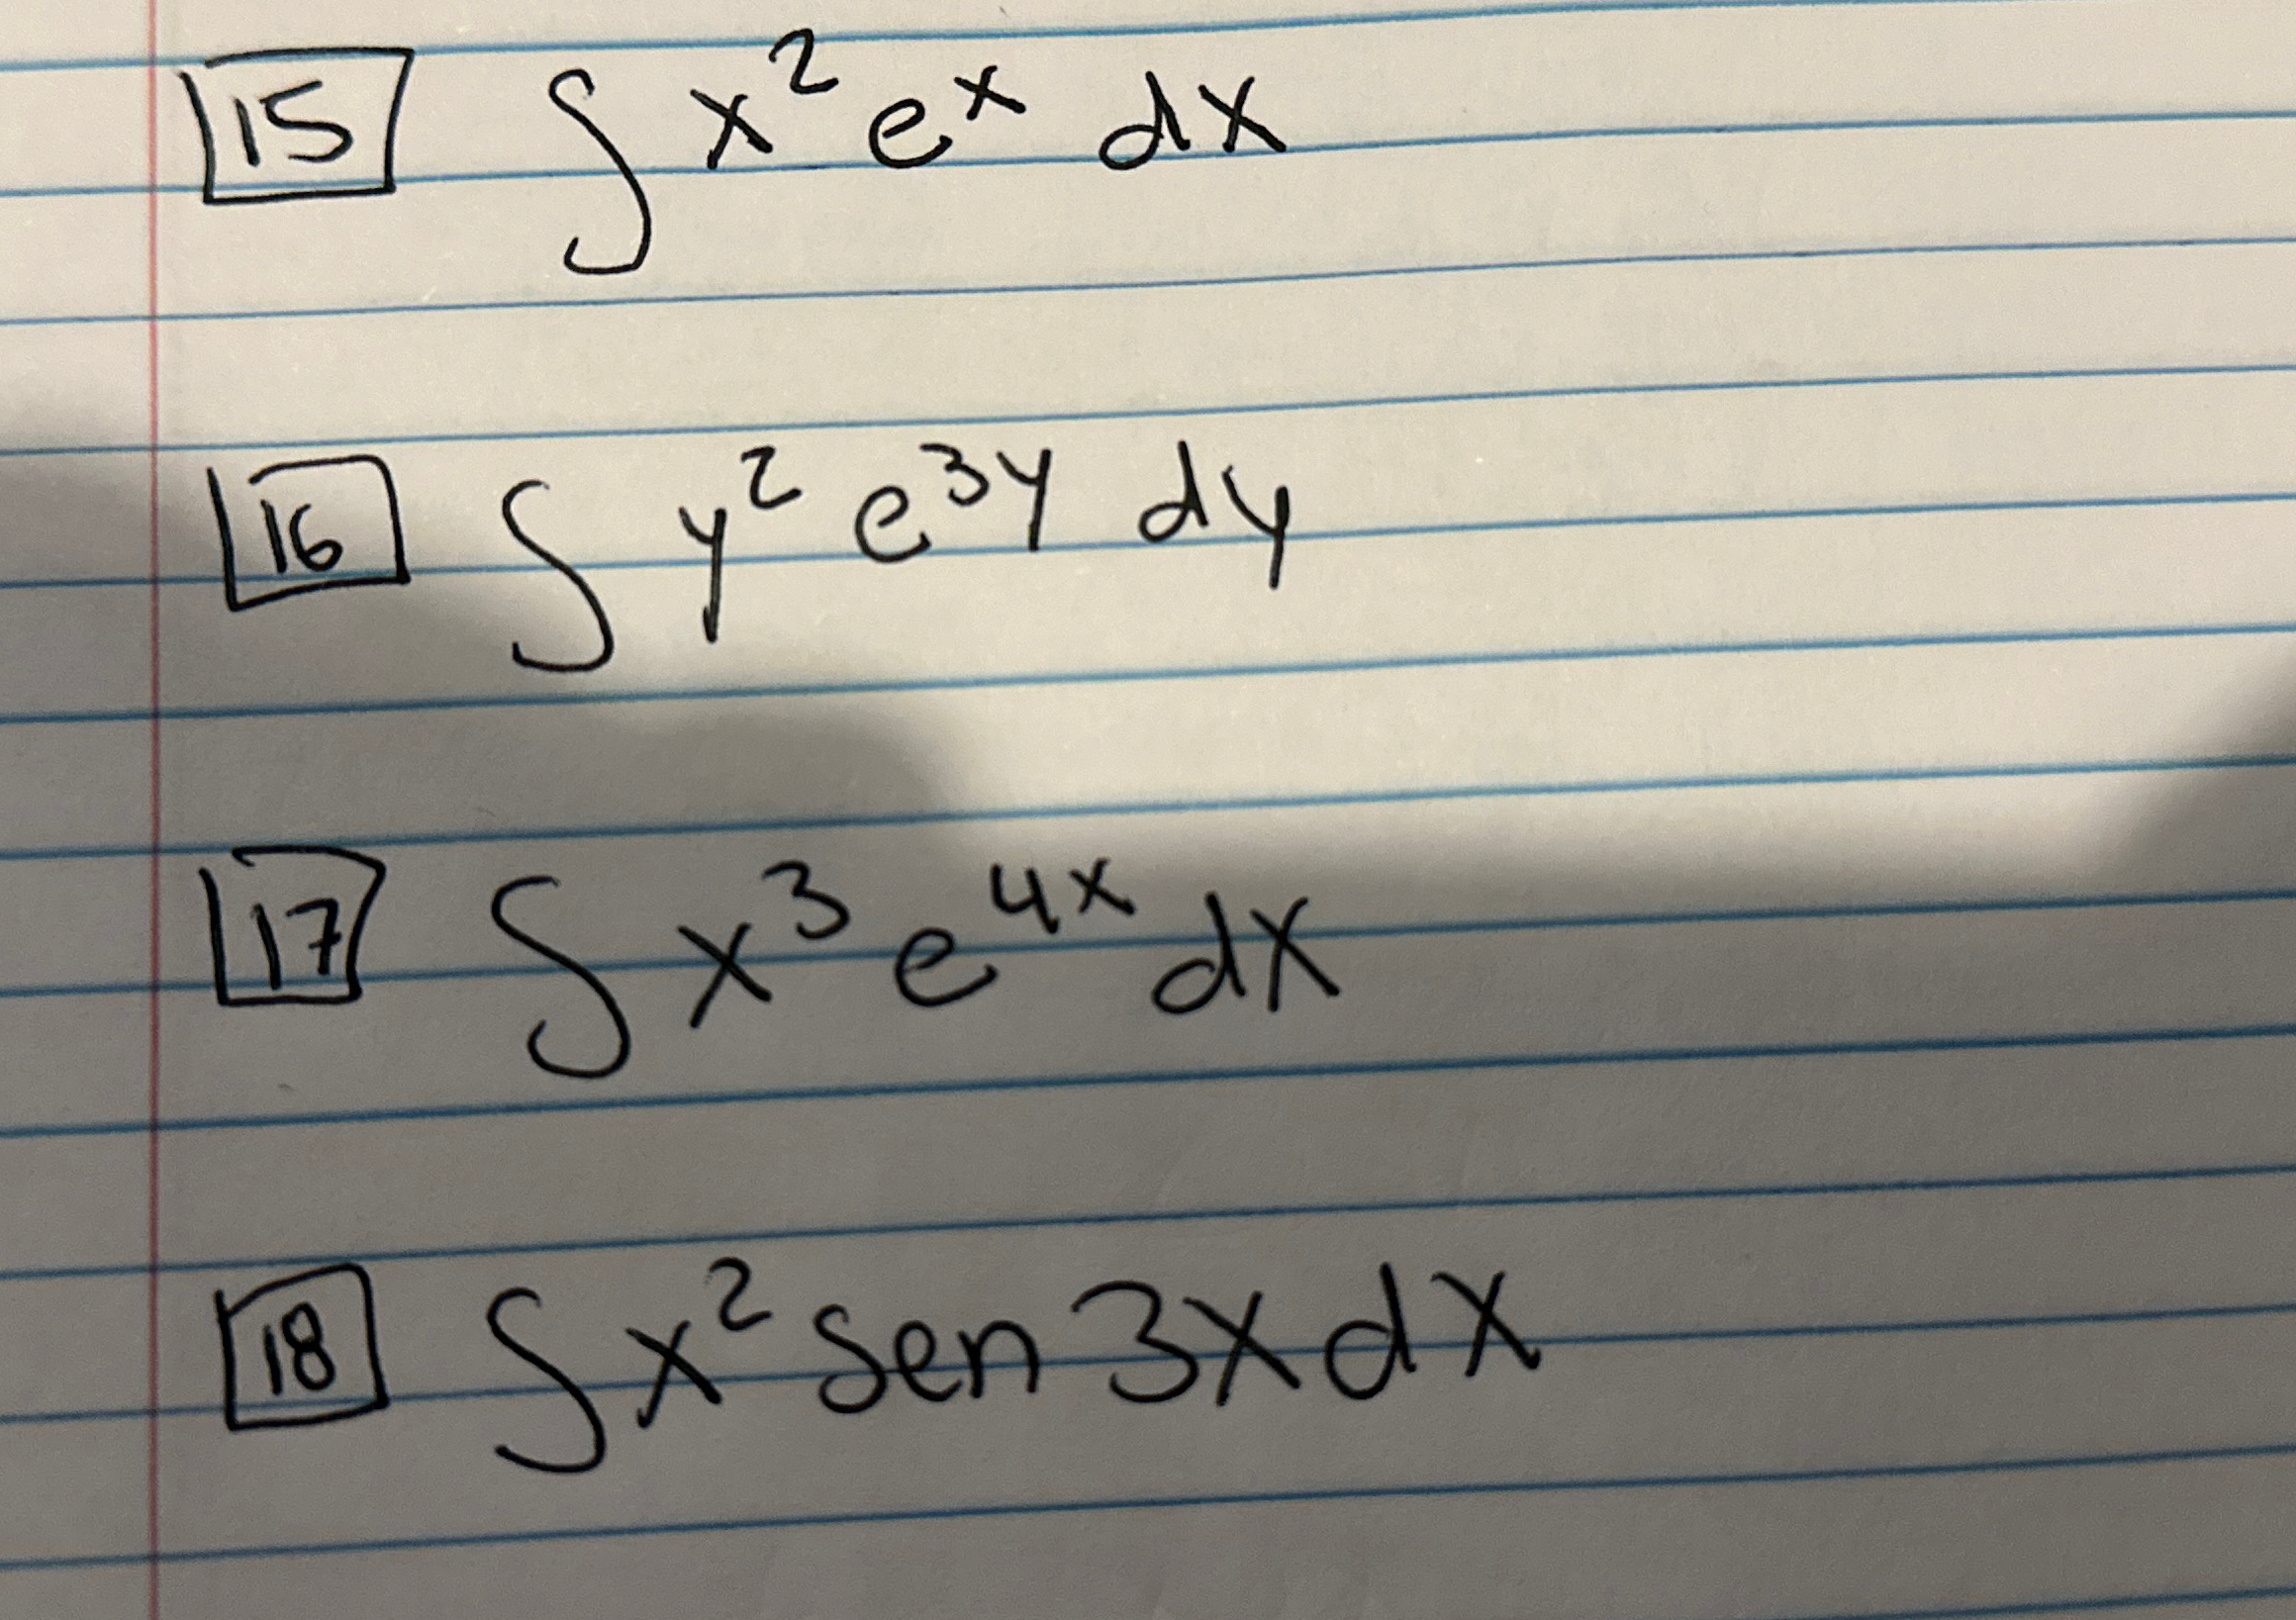 15 ∫ x² eˣ dx
16 ∫ y² e³ʸ dy
17 ∫ x³ e⁴ˣ dx
18 ∫ x² sen 3x dx